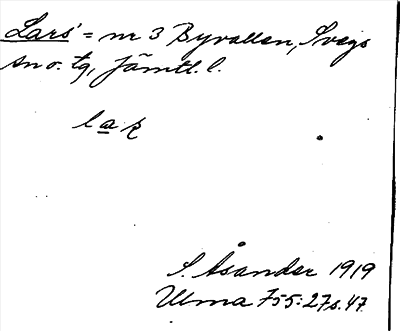 Lars' = nr 3 Byvallen, Svegs
sn o. tg, Jämtl. l.
l a ʀ
S. Åsander 1919
Ulma 755:27 s. 47